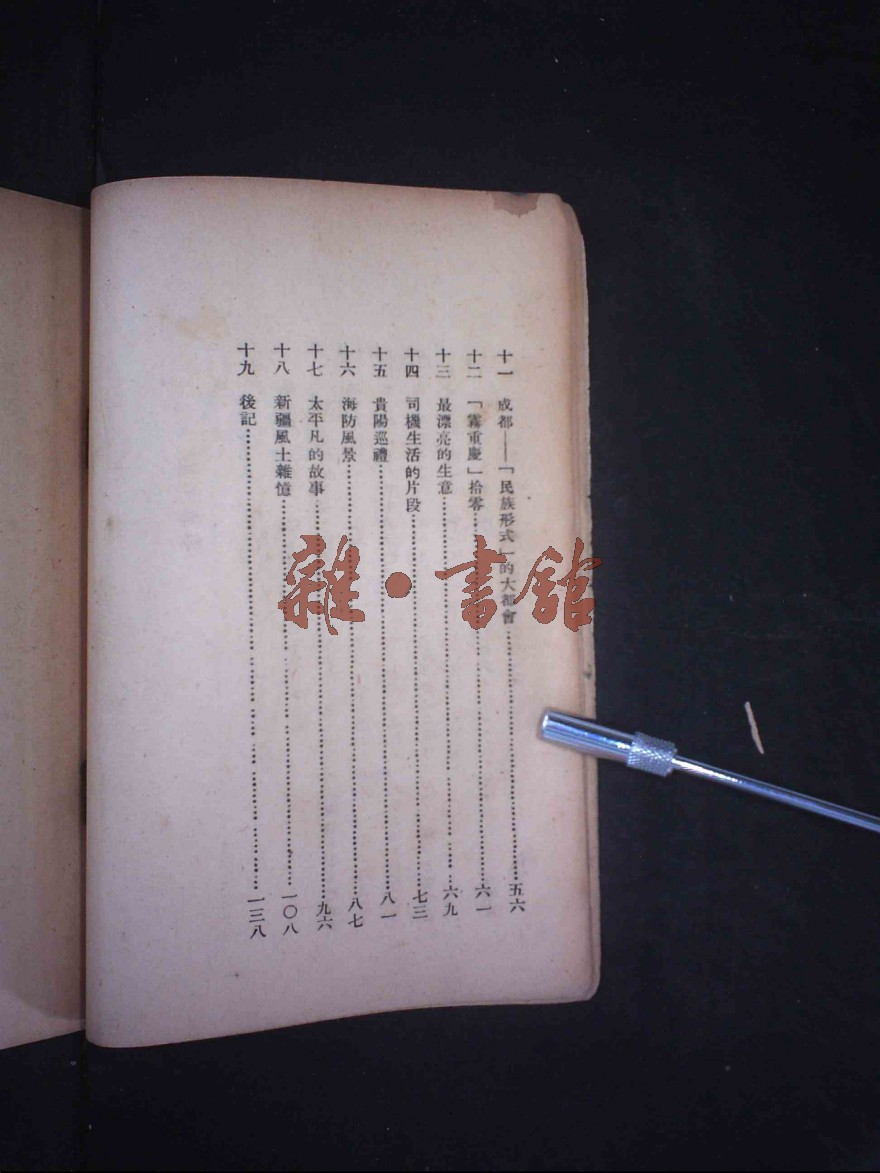 十一 成都——「民族形式」的大都會……五六
十二 「霧重慶」拾零……六一
十三 最漂亮的生意……六九
十四 司機生活的片段……七三
十五 貴陽巡禮……八一
十六 海防風景……八七
十七 太平凡的故事……九六
十八 新疆風土雜憶……一〇八
十九 後記……一三八
雜·書館